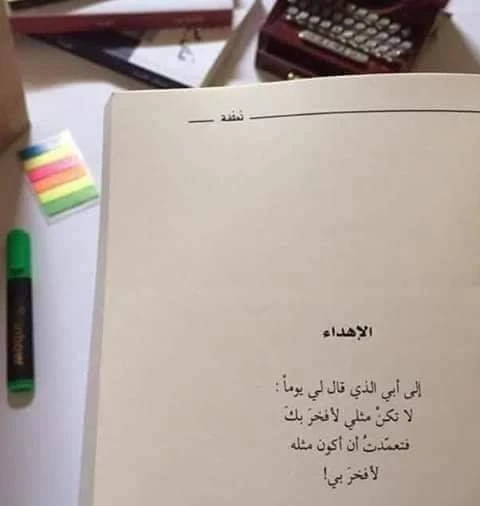 نطفة
الإهداء
إلى أبي الذي قال لي يوماً :
لا تكنْ مثلي لأفخرَ بكَ
فتعمّدتُ أن أكون مثله
لأفخرَ بي!